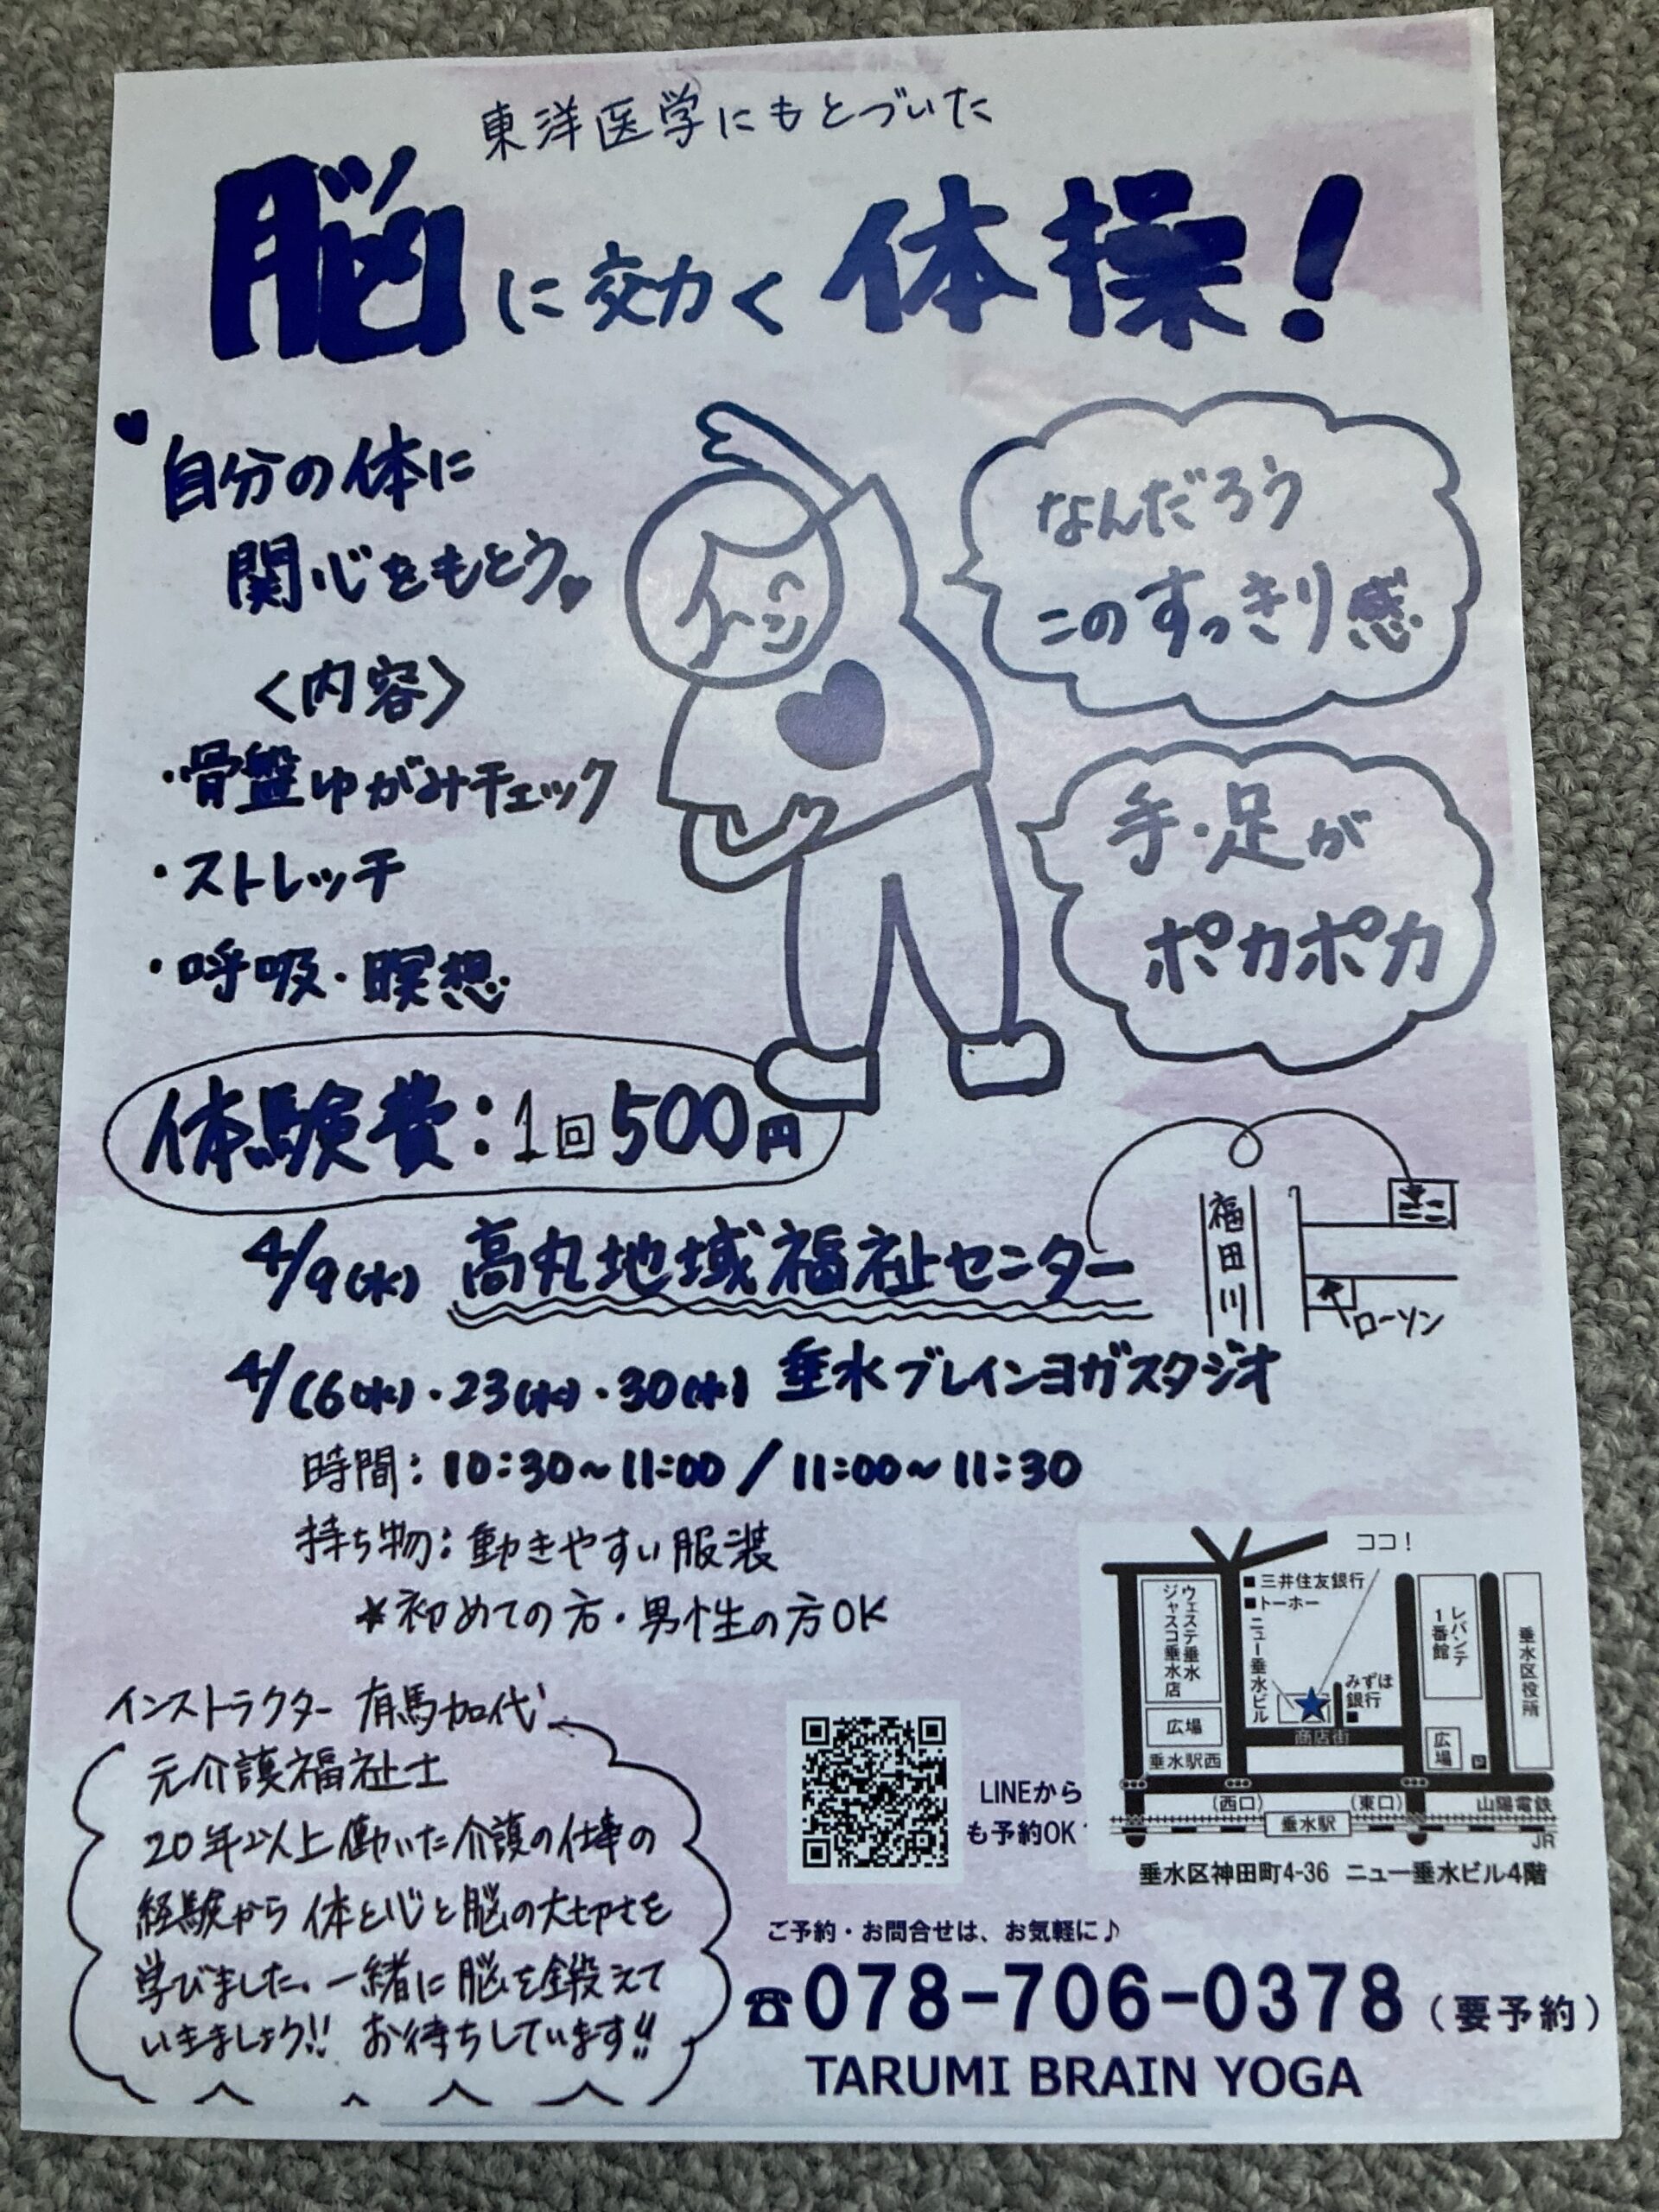 東洋医学にもとづいた
脳に効く体操!
自分の体に
関心をもとう
なんだろう
このすっきり感
〈内容〉
・骨盤ゆがみチェック
・ストレッチ
・呼吸・瞑想
手・足が
ポカポカ
体験費:1回500円
4/9(水) 高丸地域福祉センター
福田川
ココ
ローソン
4/16(水)・23(水)・30(水) 垂水ブレインヨガスタジオ
時間:10:30~11:00/11:00~11:30
持ち物:動きやすい服装
*初めての方・男性の方OK
インストラクター 有馬加代
元介護福祉士
20年以上働いた介護の仕事の
経験から体と心と脳の大切さを
学びました。一緒に脳を鍛えて
いきましょう!! お待ちしています!!
LINEから
も予約OK
ココ!
■三井住友銀行
■トーホー
ウェステ垂水
ジャスコ垂水店
ニュー垂水ビル
みずほ
銀行
■
レバンテ
1番館
垂水区役所
広場
商店街
広場
P
垂水駅西
(西口)
(東口)
山陽電鉄
垂水駅
JR
垂水区神田町4-36 ニュー垂水ビル4階
ご予約・お問合せは、お気軽に♪
☎078-706-0378(要予約)
TARUMI BRAIN YOGA